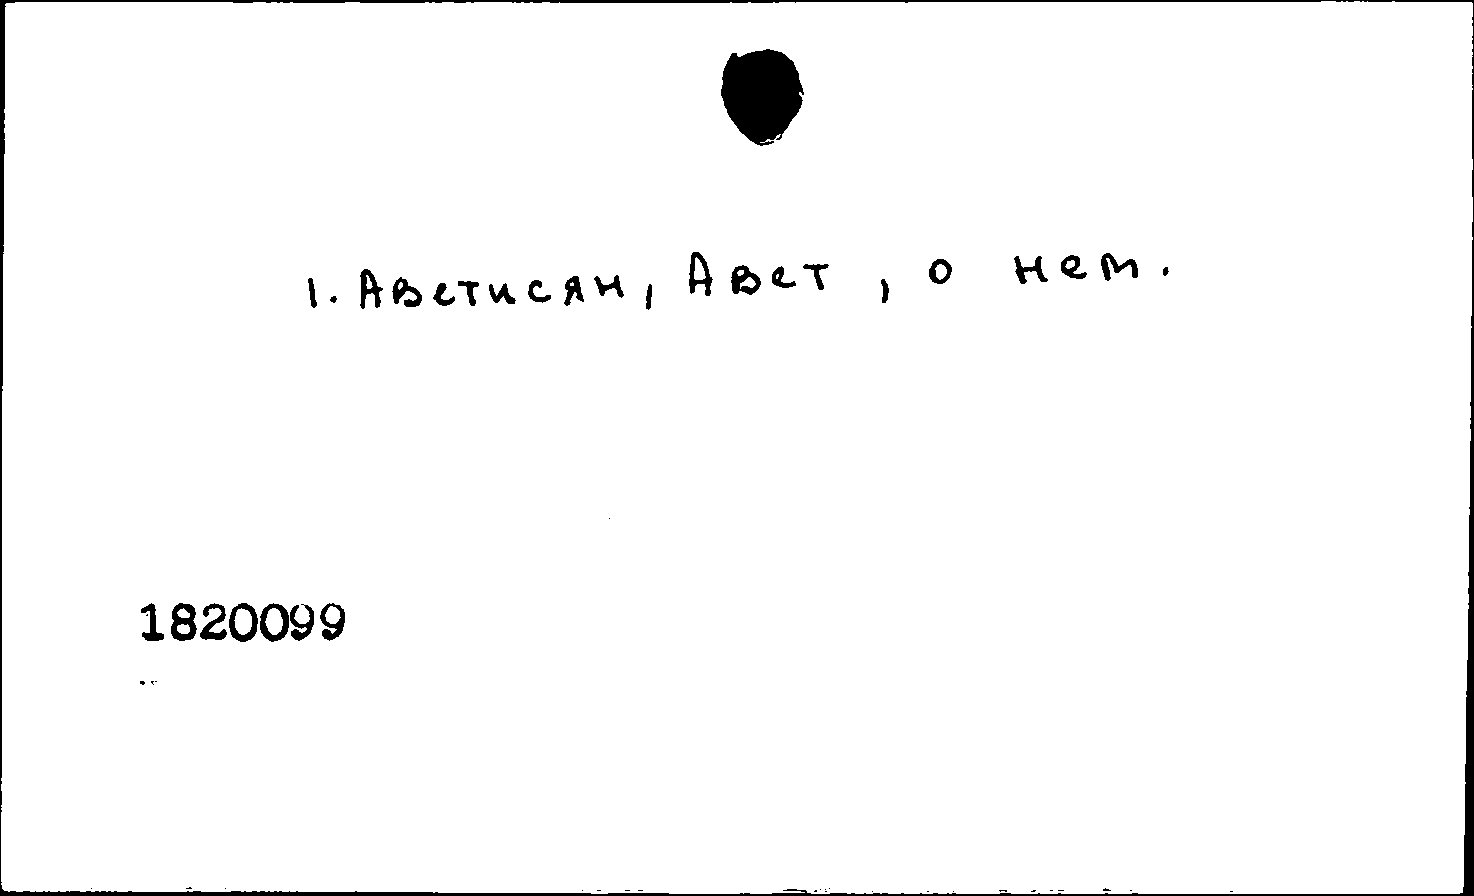 1. Аветисян, Авет, о нем.
1820099